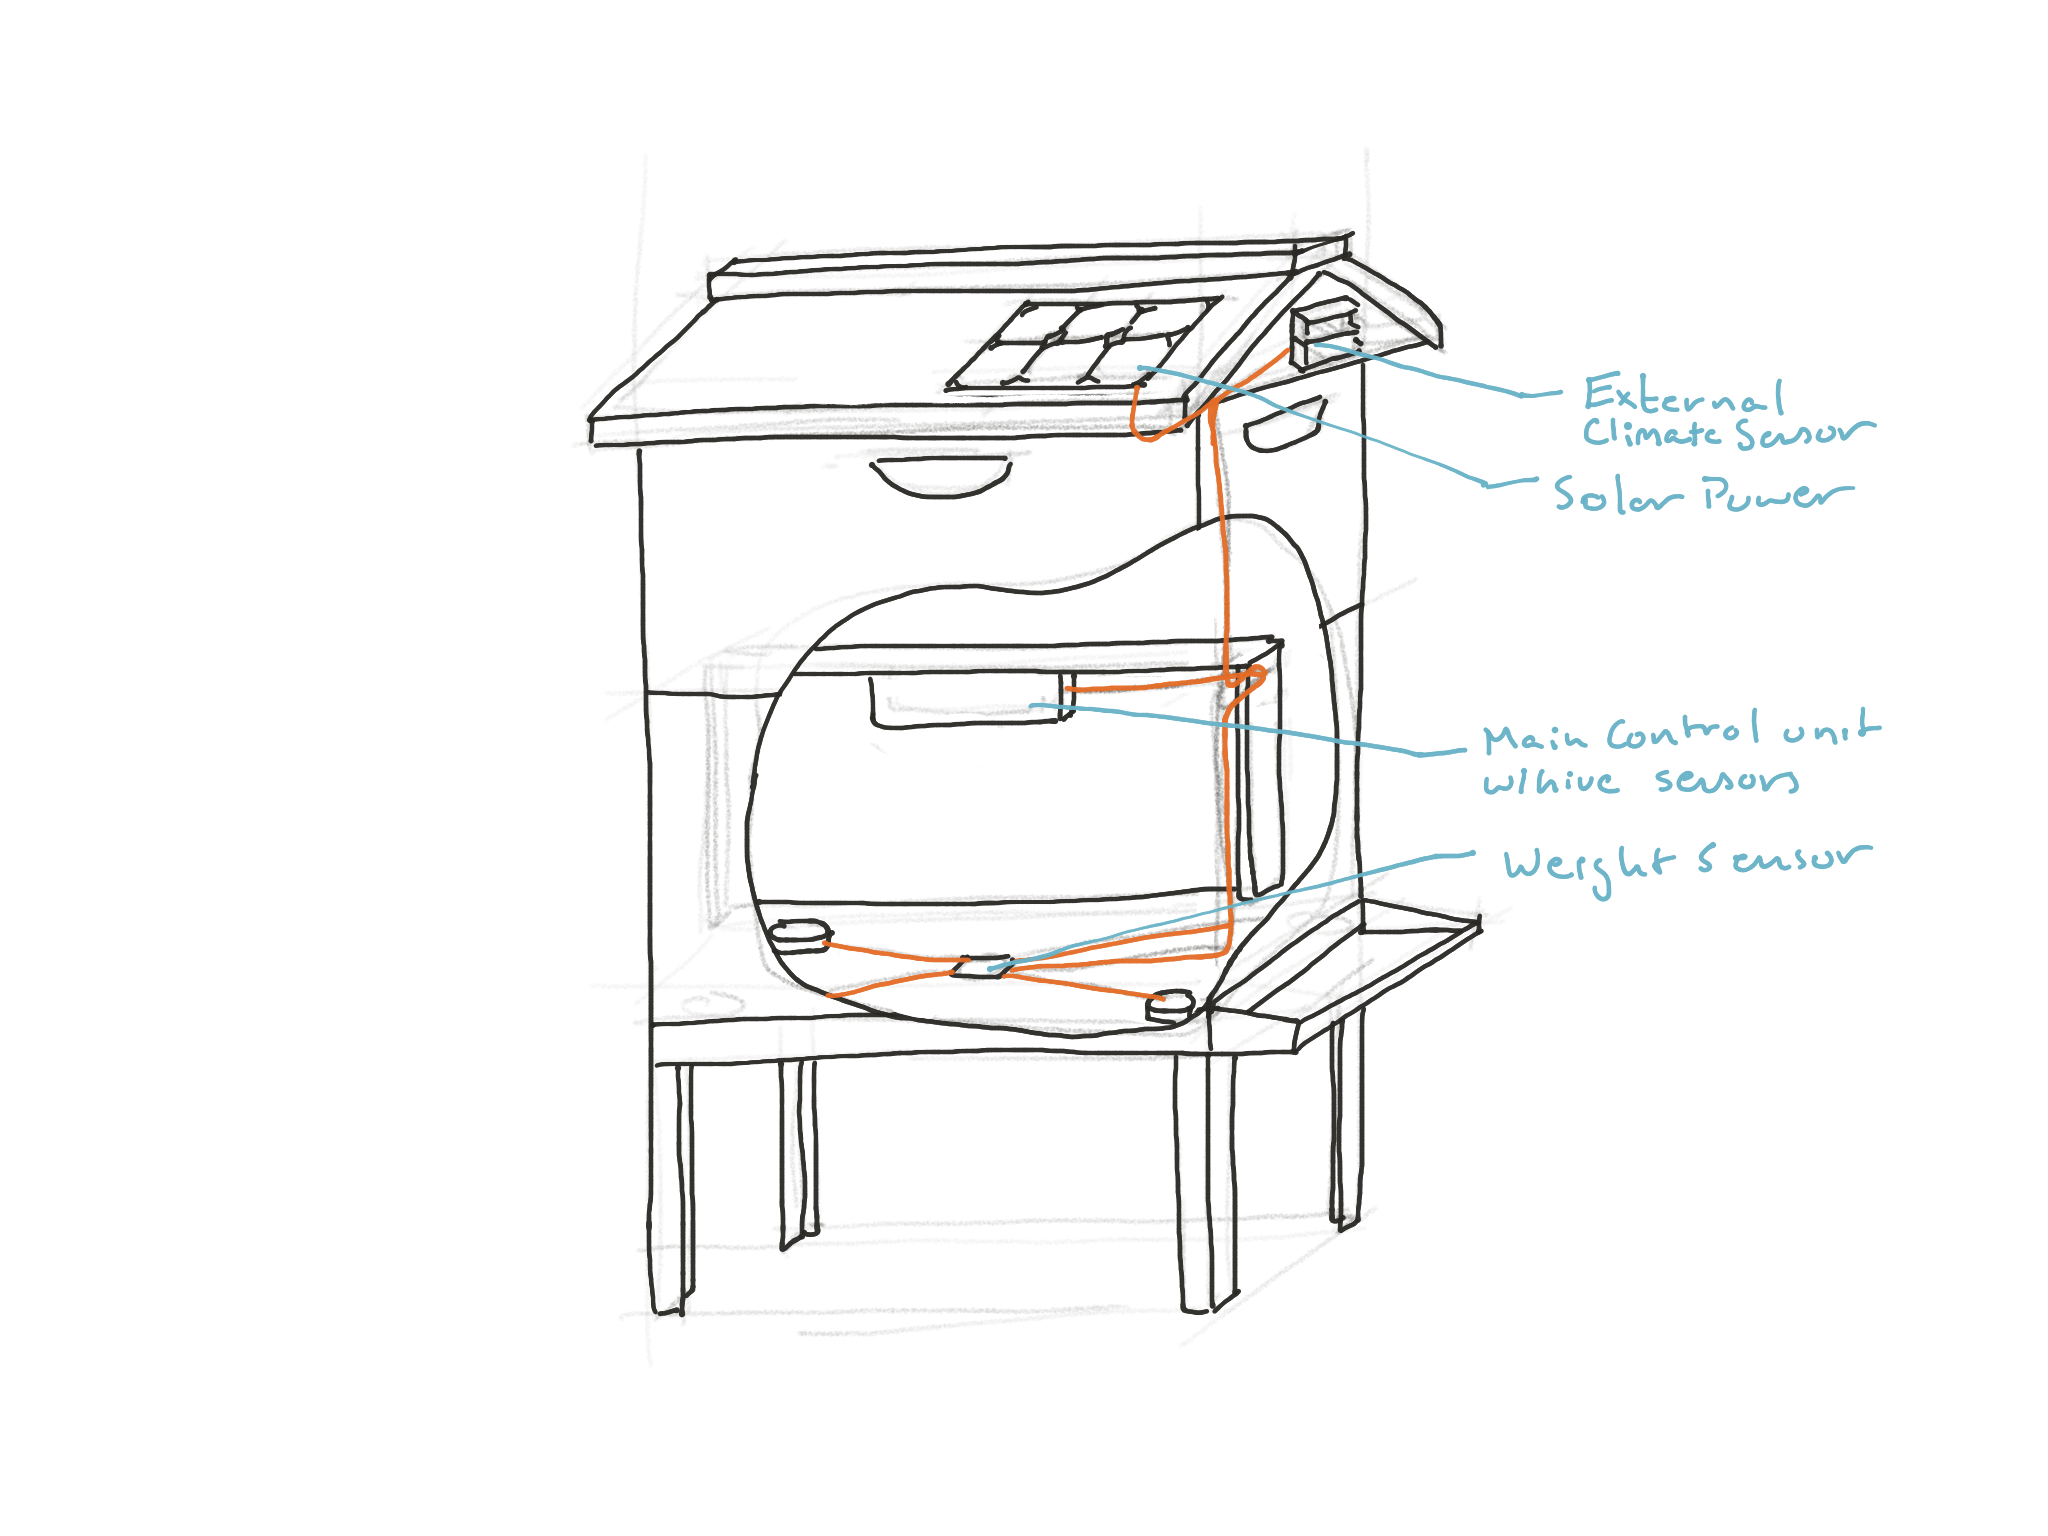 External
Climate Sensor
Solar Power
Main Control unit
w/hive sensors
Weight Sensor